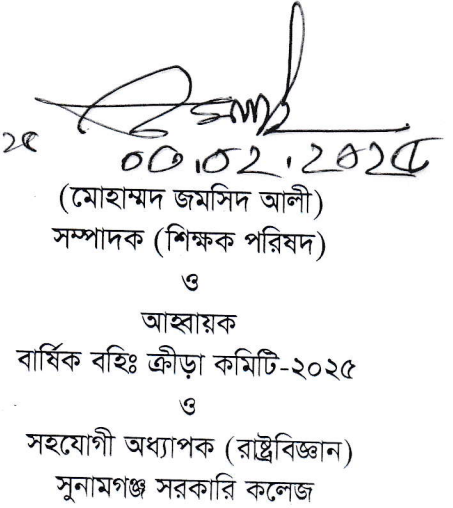 ২৫
০৩.০২.২০২৫
(মোহাম্মদ জমসিদ আলী)
সম্পাদক (শিক্ষক পরিষদ)
ও
আহ্বায়ক
বার্ষিক বহিঃ ক্রীড়া কমিটি-২০২৫
ও
সহযোগী অধ্যাপক (রাষ্ট্রবিজ্ঞান)
সুনামগঞ্জ সরকারি কলেজ